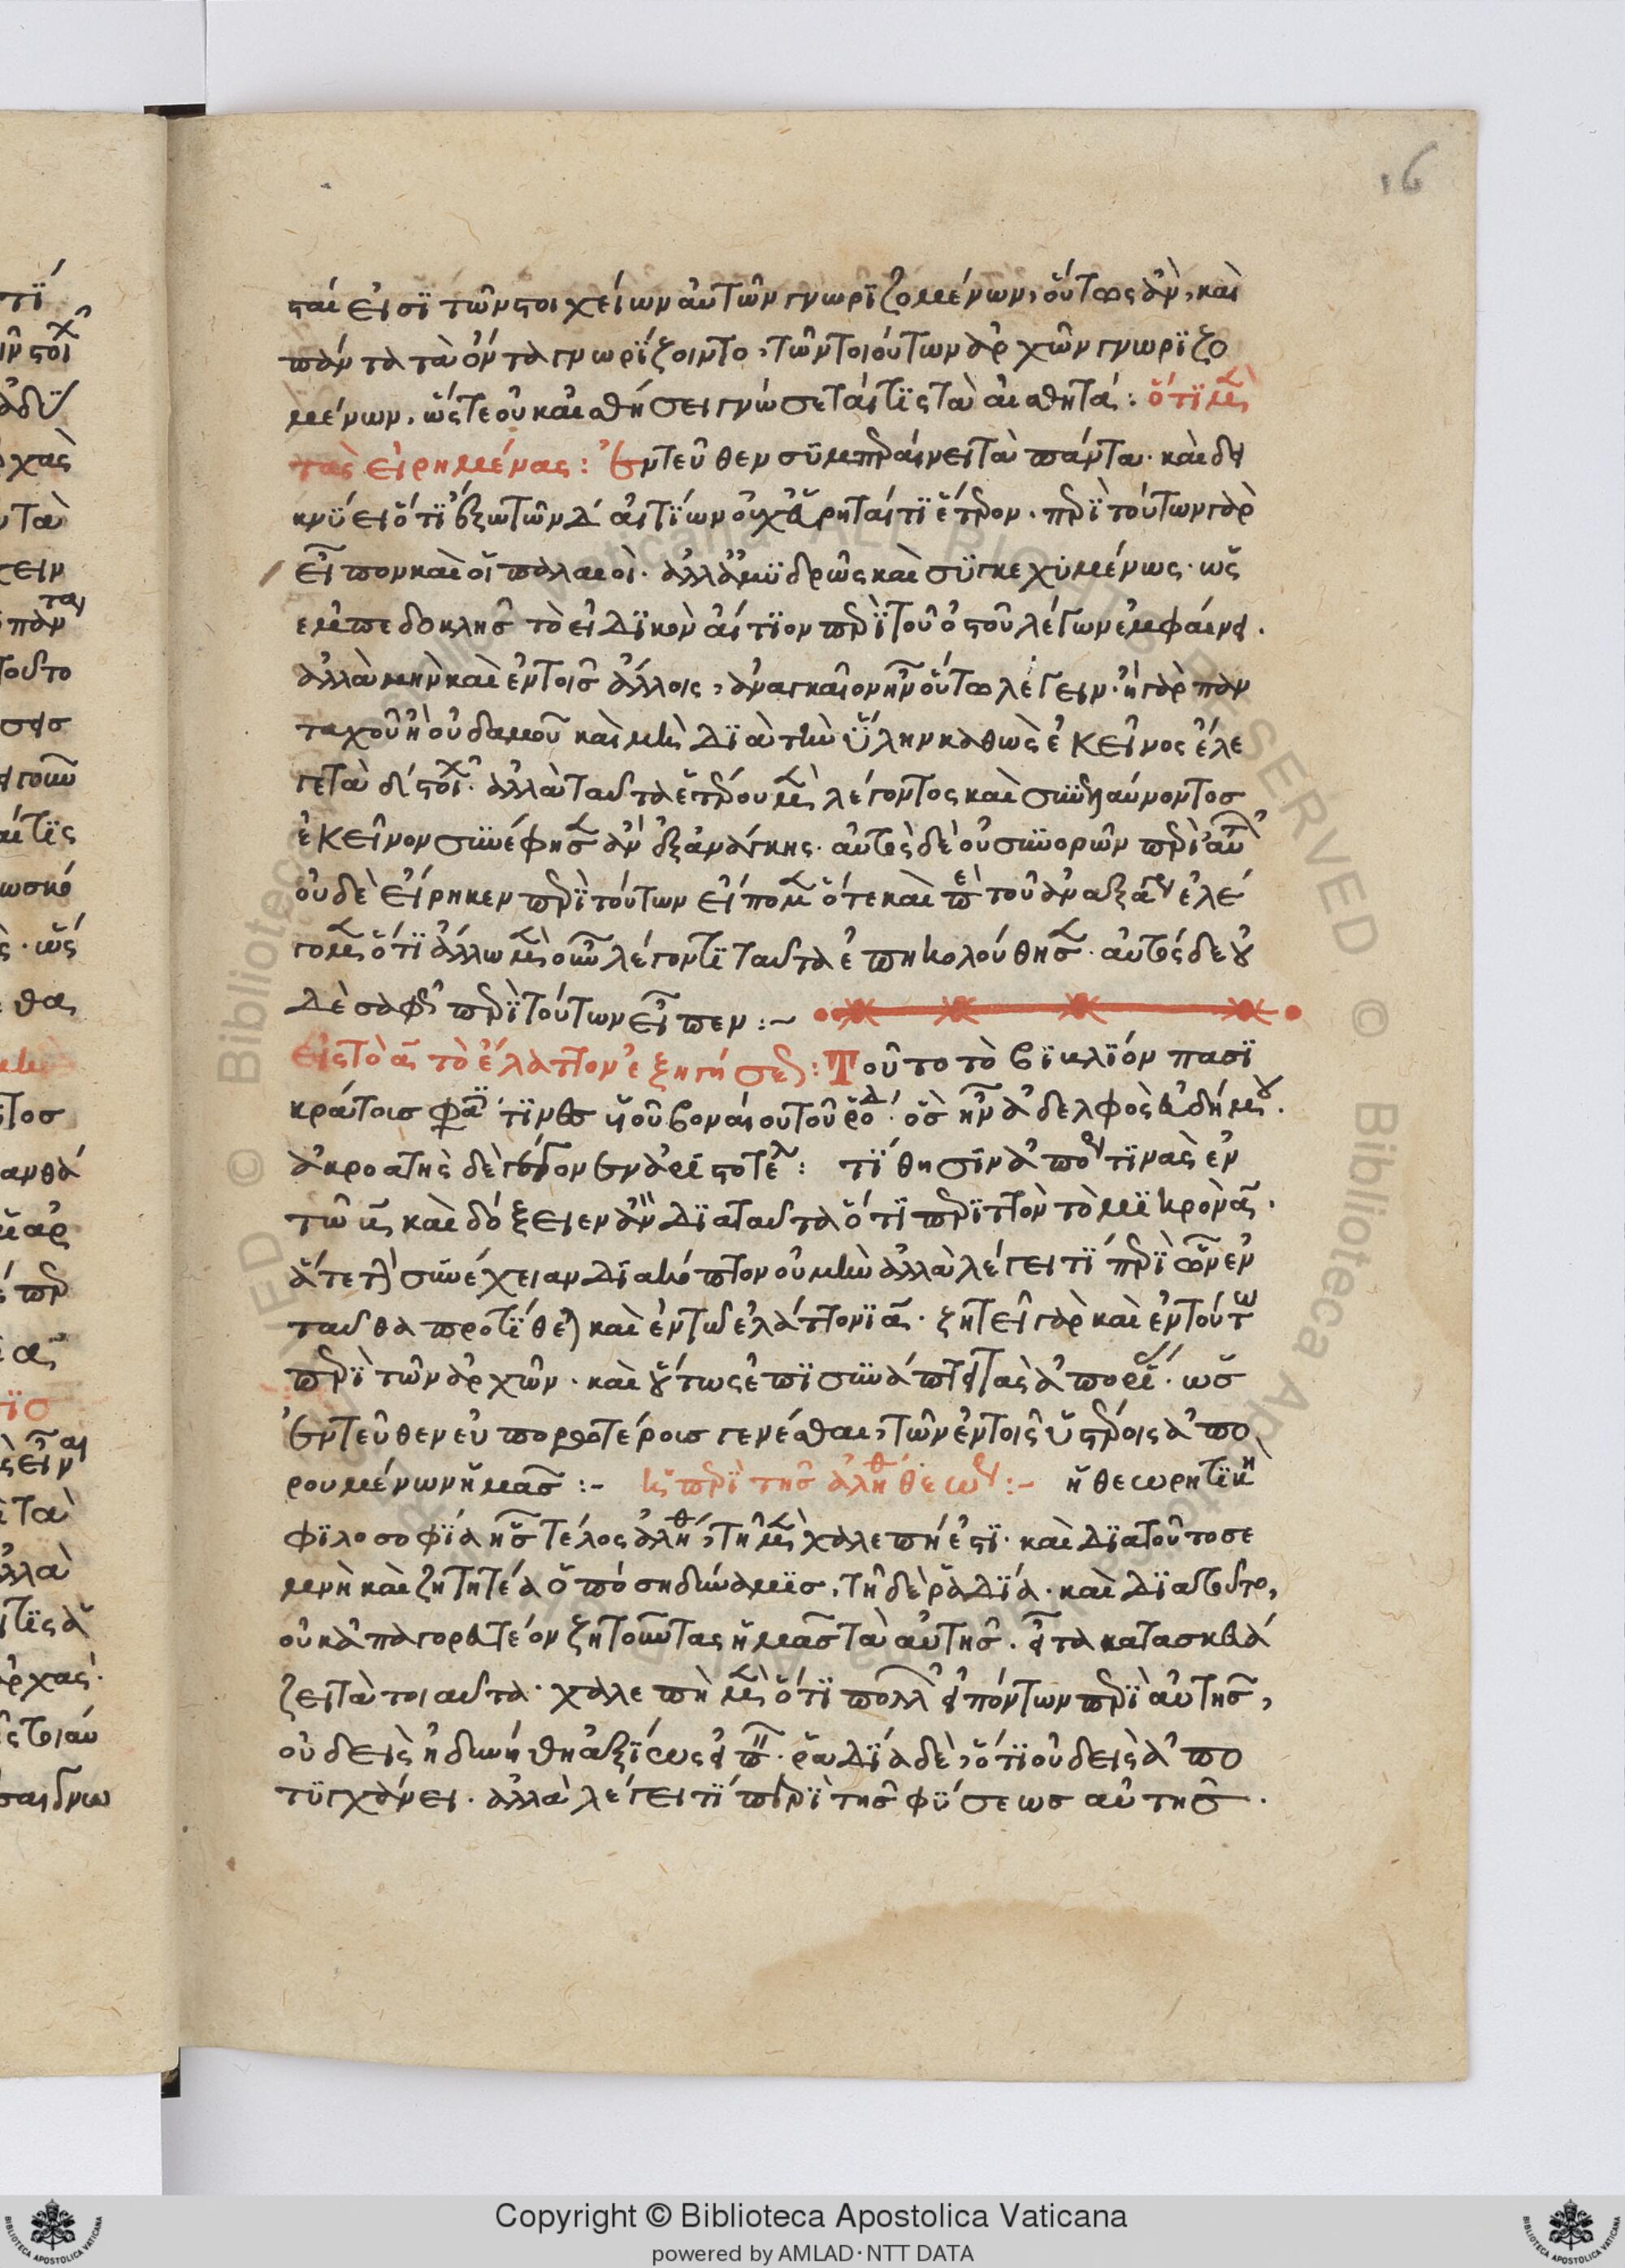 16
σταί εἰσι τῶν στοιχείων αὐτῶν γνωριζομένων, οὕτως ἂν, καὶ
πάντα τὰ ὄντα γνωρίζοιντο, τῶν τοιούτων ἀρχῶν γνωριζο
μένων, ὥστε οὐκ αἰσθήσει γνώσεταί τις τὰ αἰσθητά: ὅτι μὲν
τὰς εἰρημένας: Ἐντεῦθεν συμπεραίνει τὰ πάντα. καὶ δει
κνύει ὅτι ἔξω τῶν δ αἰτίων οὐχ εὕρηταί τι ἕτερον. περὶ τούτων γὰρ
εἶπον καὶ οἱ παλαιοί. ἀλλ' ἀμυδρῶς καὶ συγκεχυμένως. ὡς
ἐμπεδοκλῆς τὸ εἰδικὸν αἴτιον περὶ τοῦ ὀστοῦ λέγων ἐμφαίνει.
ἀλλὰ μὴν καὶ ἐν τοῖς ἄλλοις, ἀναγκαῖον ἦν οὕτω λέγειν. ἢ γὰρ παν
ταχοῦ ἢ οὐδαμοῦ καὶ μὴ διὰ τὴν ὕλην καθὼς ἐκεῖνος ἔλε
γε τὰ δ στοιχ. ἀλλὰ ταῦτα ἑτέρου μὲν λέγοντος καὶ συμπεραίνοντος
ἐκεῖνον συνέφησεν ἂν ἐξ ἀνάγκης. αὐτὸς δὲ οὐ συνορῶν περὶ αὐτ
οὐδὲ εἴρηκεν περὶ τούτων εἴπομεν ὅτε καὶ περὶ τοῦ ἀναξαγ ἐλέ
γομεν ὅτι ἄλλω μὲν οὖν λέγοντι ταῦτα ἐπηκολούθησεν. αὐτὸς δὲ οὐ
δὲ σαφῶς περὶ τούτων εἶπεν :~
εἰς τὸ α τὸ ἔλαττον ἐξηγήσεις: Τοῦτο τὸ βιβλίον πασι
κράτους φασί τινες υἱοῦ βοναίου τοῦ ῥοδ. ὃς ἦν ἀδελφὸς εὐδήμου.
ἀκροατὴς δὲ γέγονεν ἀριστοτελ: τίθησιν ἀπορ τινὰς ἐν
τῶ β καὶ δόξειεν ἂν διὰ ταῦτα ὅτι περιττὸν τὸ μικρὸν α.
ἅτε τὴν συνέχειαν διακόπτον οὐ μὴν ἀλλὰ λέγει τι περὶ ὧν ἐν
ταῦθα προτίθεται καὶ ἐν τῶ ἐλάττονι α. ζητεῖ γὰρ καὶ ἐν τούτω
περὶ τῶν ἀρχῶν. καὶ οὕτως ἐπισυνάπτει τὰς ἀπορίας. ὡς
ἐντεῦθεν εὐπορωτέροις γενέσθαι, τῶν ἐν τοῖς ὑστέροις ἀπο
ρουμένων ἡμᾶς :- Ἡ περὶ τῆς ἀληθ θεωρ :- ἡ θεωρητικὴ
φιλοσοφία ἧς τέλος ἀλήθ, τῆ μὲν χαλεπή ἐστι. καὶ διὰ τοῦτο σε
μνὴ καὶ ζητητέα ὁπόση δύναμις, τῆ δὲ ῥαδία. καὶ διὰ τοῦτο,
οὐκ ἀπαγορευτέον ζητοῦντας ἡμᾶς τὰ αὐτῆς. εἶτα κατασκευά
ζει τὰ τοιαῦτα. χαλεπὴ μὲν ὅτι πολλῶν εἰπόντων περὶ αὐτῆς,
οὐδεὶς ἠδυνήθη ἀξίως εἰπεῖν. ῥαδία δὲ, ὅτι οὐδεὶς ἀπο
τυγχάνει. ἀλλὰ λέγει τι περὶ τῆς φύσεως αὐτῆς.
Copyright © Biblioteca Apostolica Vaticana
powered by AMLAD·NTT DATA